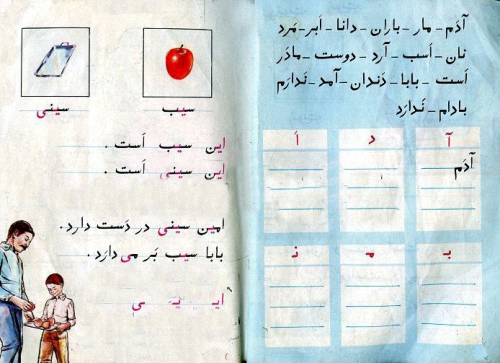 آدَم - مار - باران - دانا - اَبر - مَرد
نان - اَسب - آرد - دوست - مادَر
اَست - بابا - دَندان - آمَد - نَدارَم
بادام - نَدارَد
آ د اَ
آدَم
بـ مـ نـ
سیب سینی
این سیب اَست .
این سینی اَست .
امین سینی در دَست دارَد .
بابا سیب بَر می‌دارَد .
ایـ یـ ی